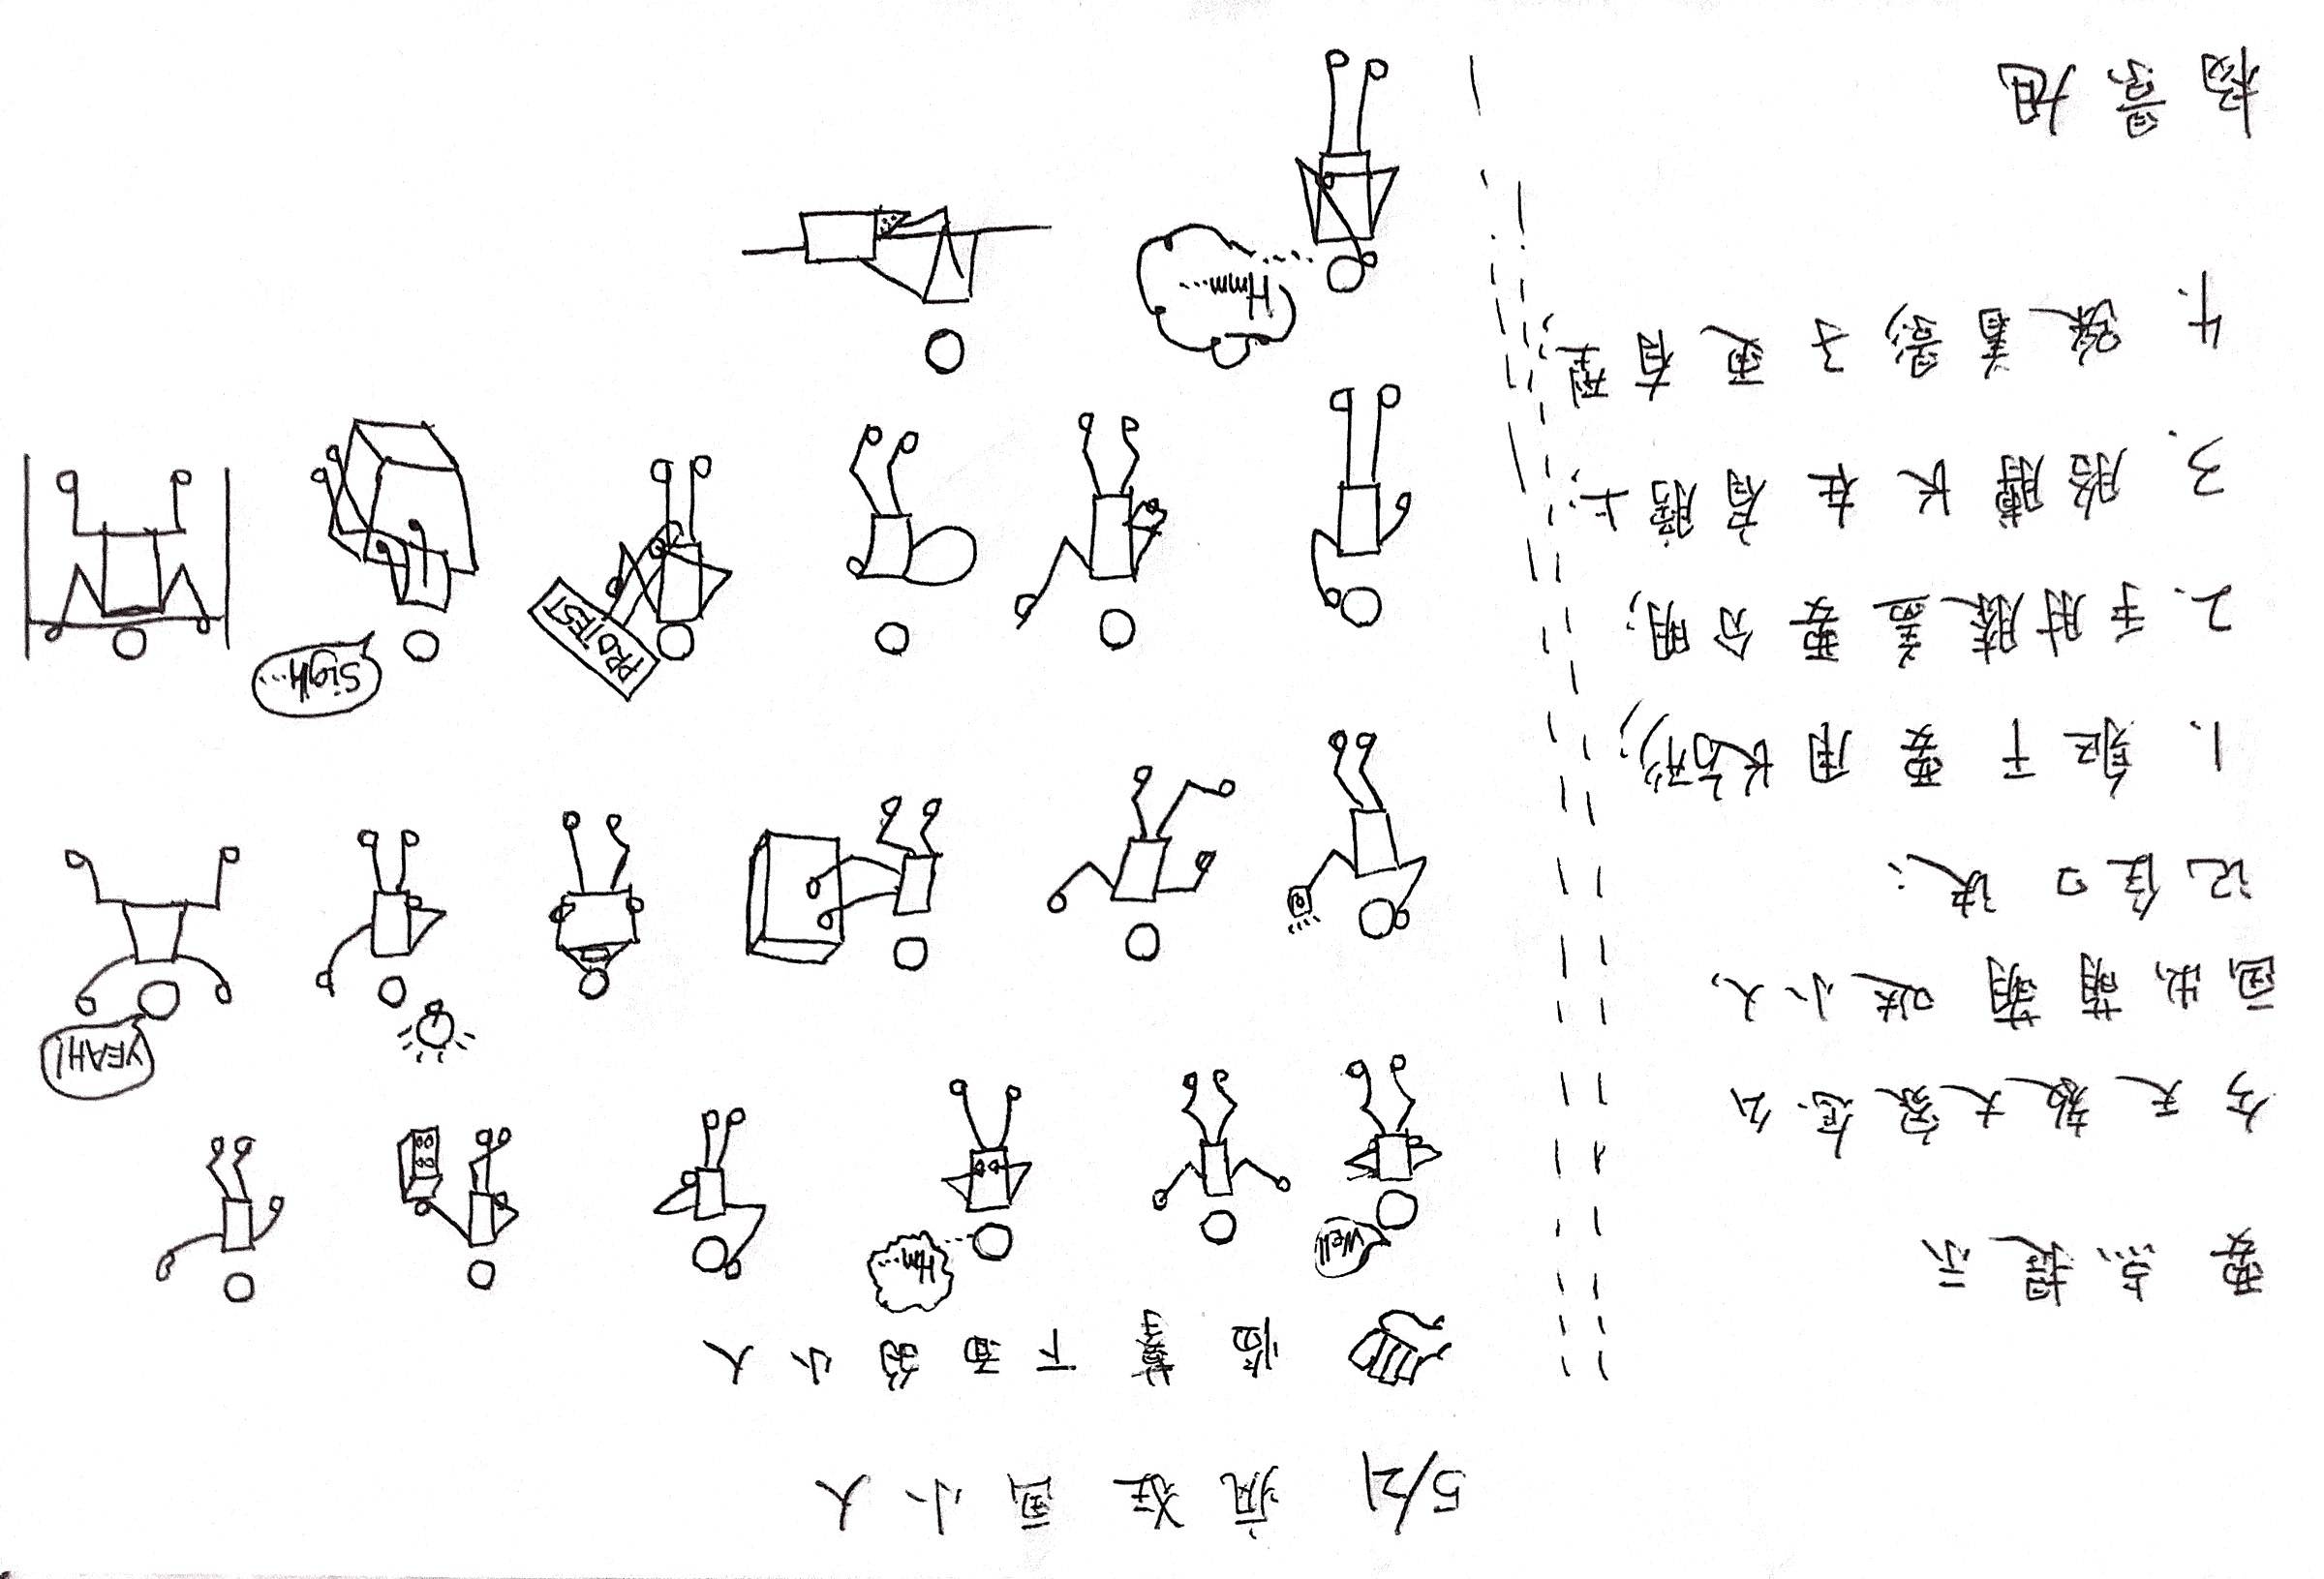 5/21 疯狂画小人
临摹下面的小人
要点提示
今天教大家怎么
画出萌萌哒小人,
记住口诀:
1、躯干要用长方形;
2、手肘膝盖要分明;
3、胳膊长在肩膀上;
4、踩着影子更有型;
杨景旭
Well
Hm...
YEAH!
PROTEST
Sigh...
Hmm...